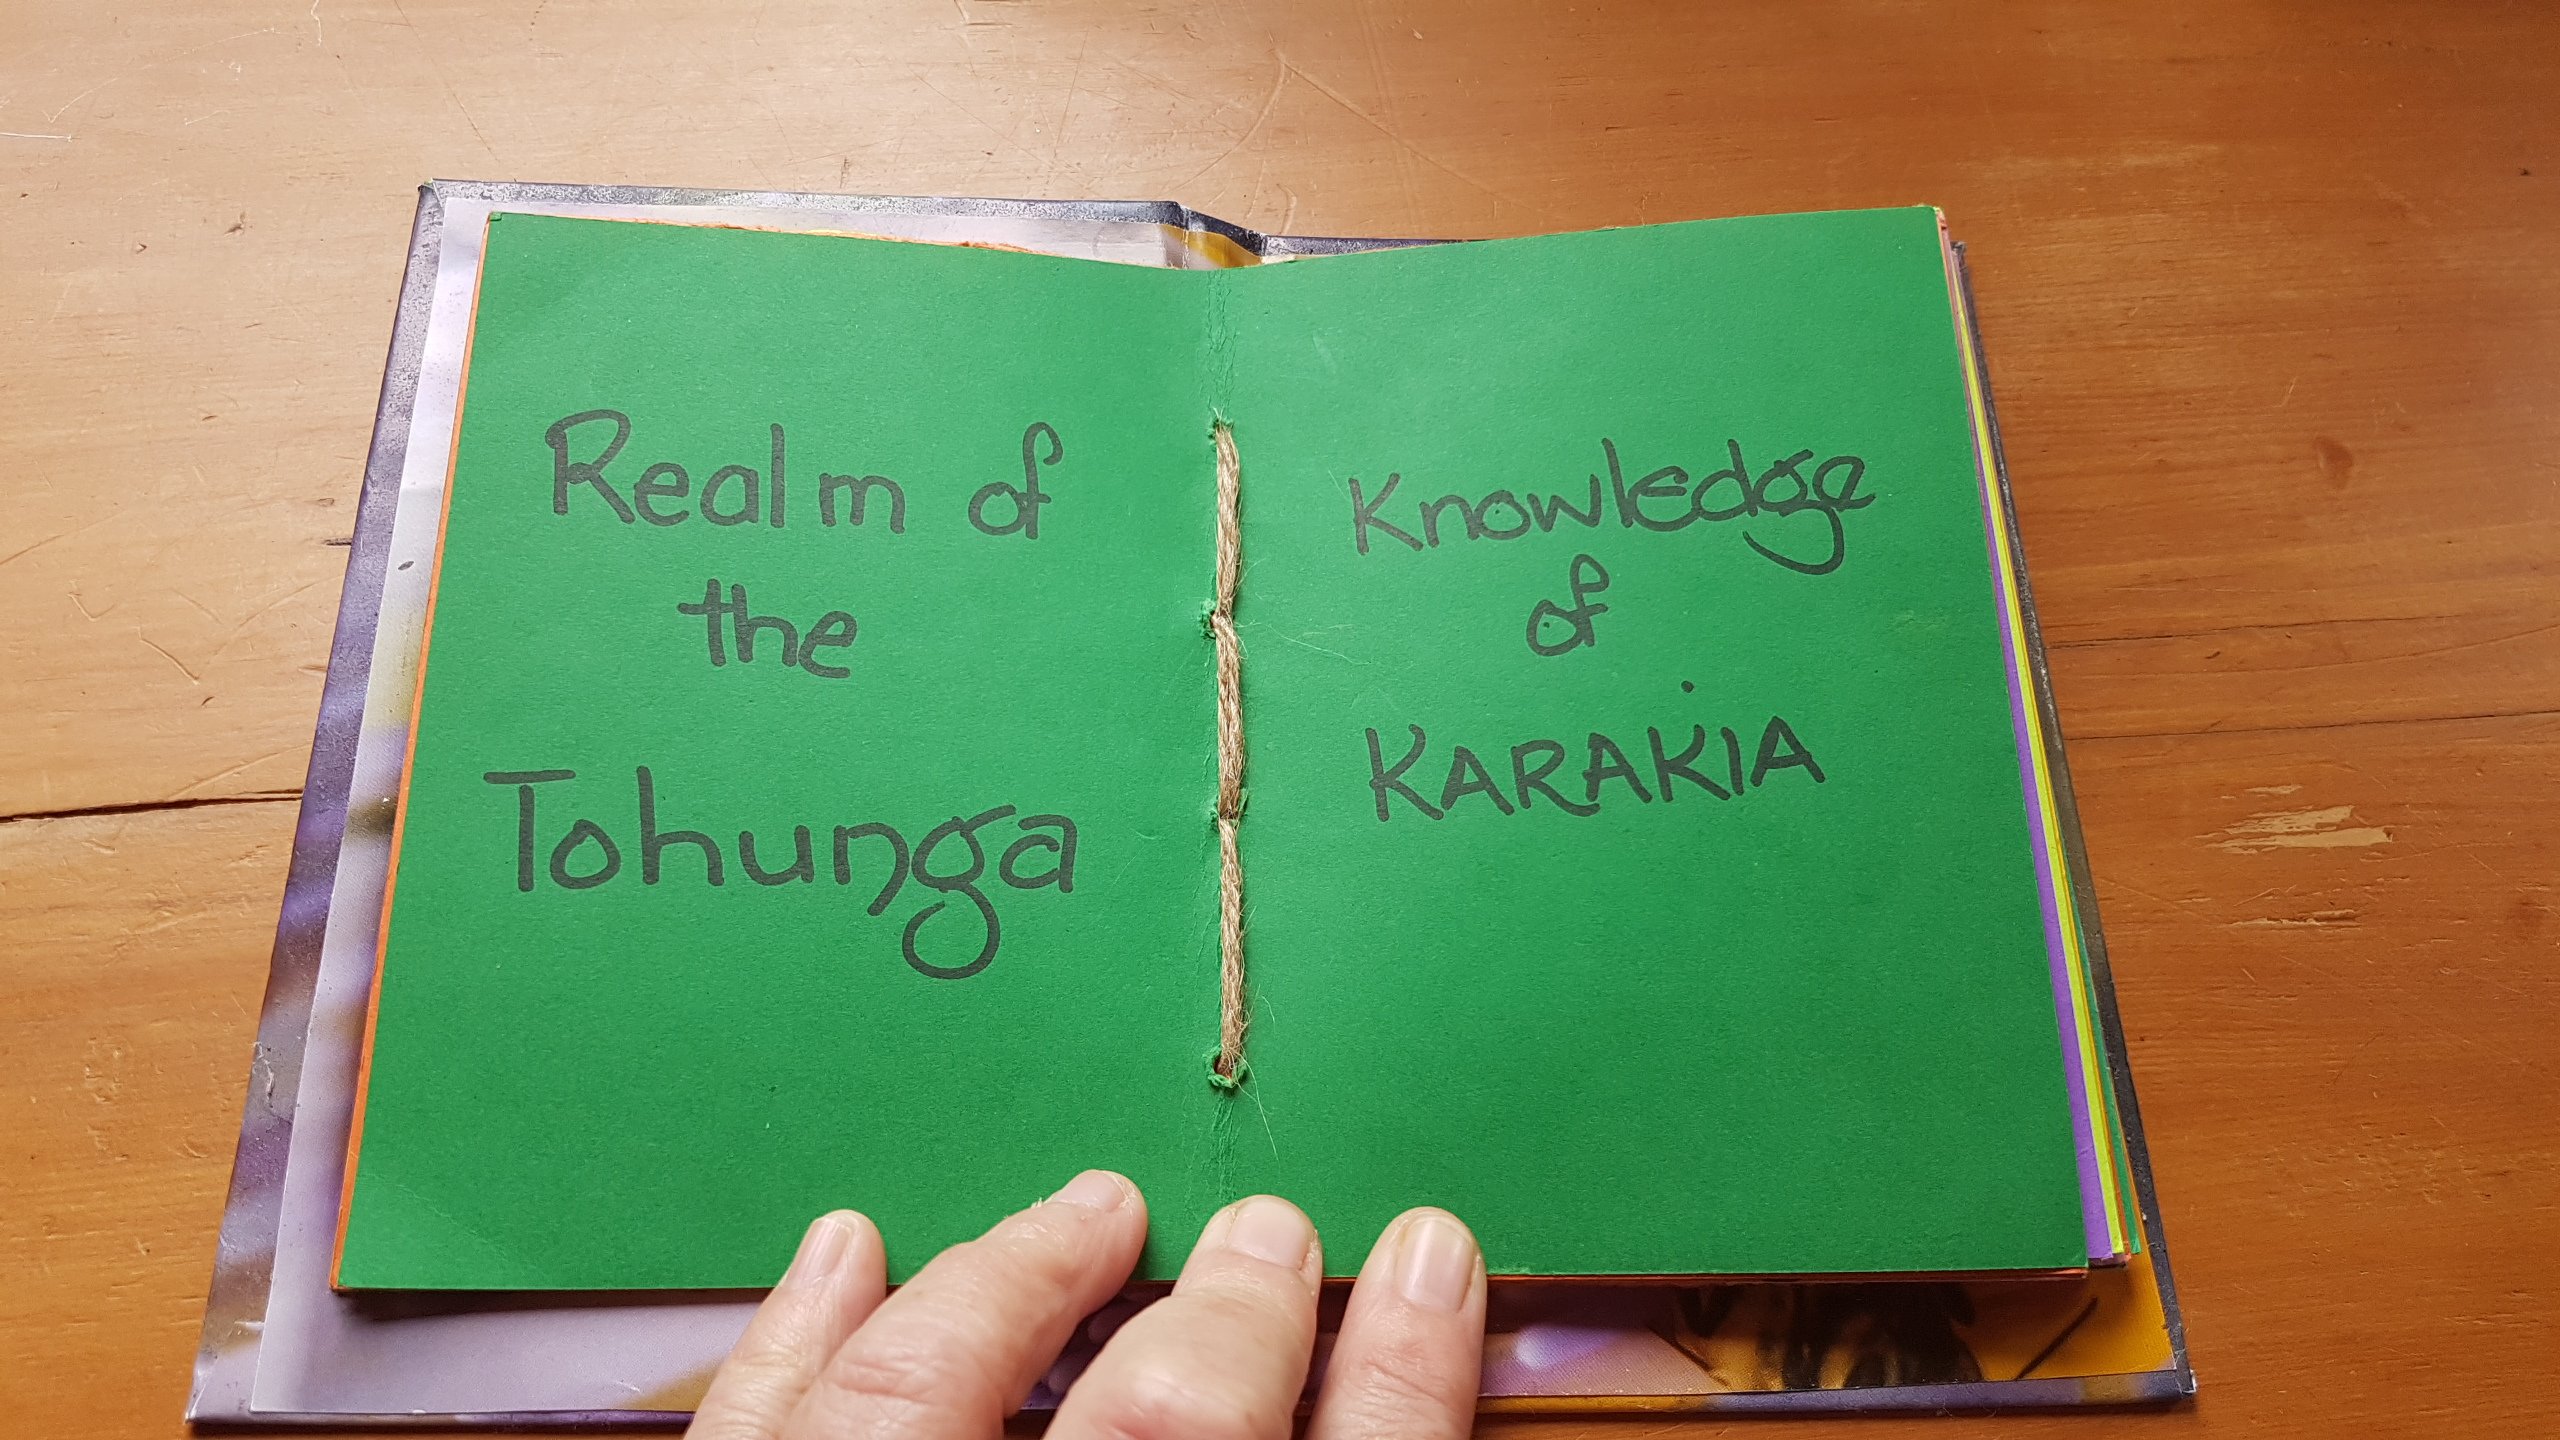 Realm of
the
Tohunga
Knowledge
of
KARAKiA